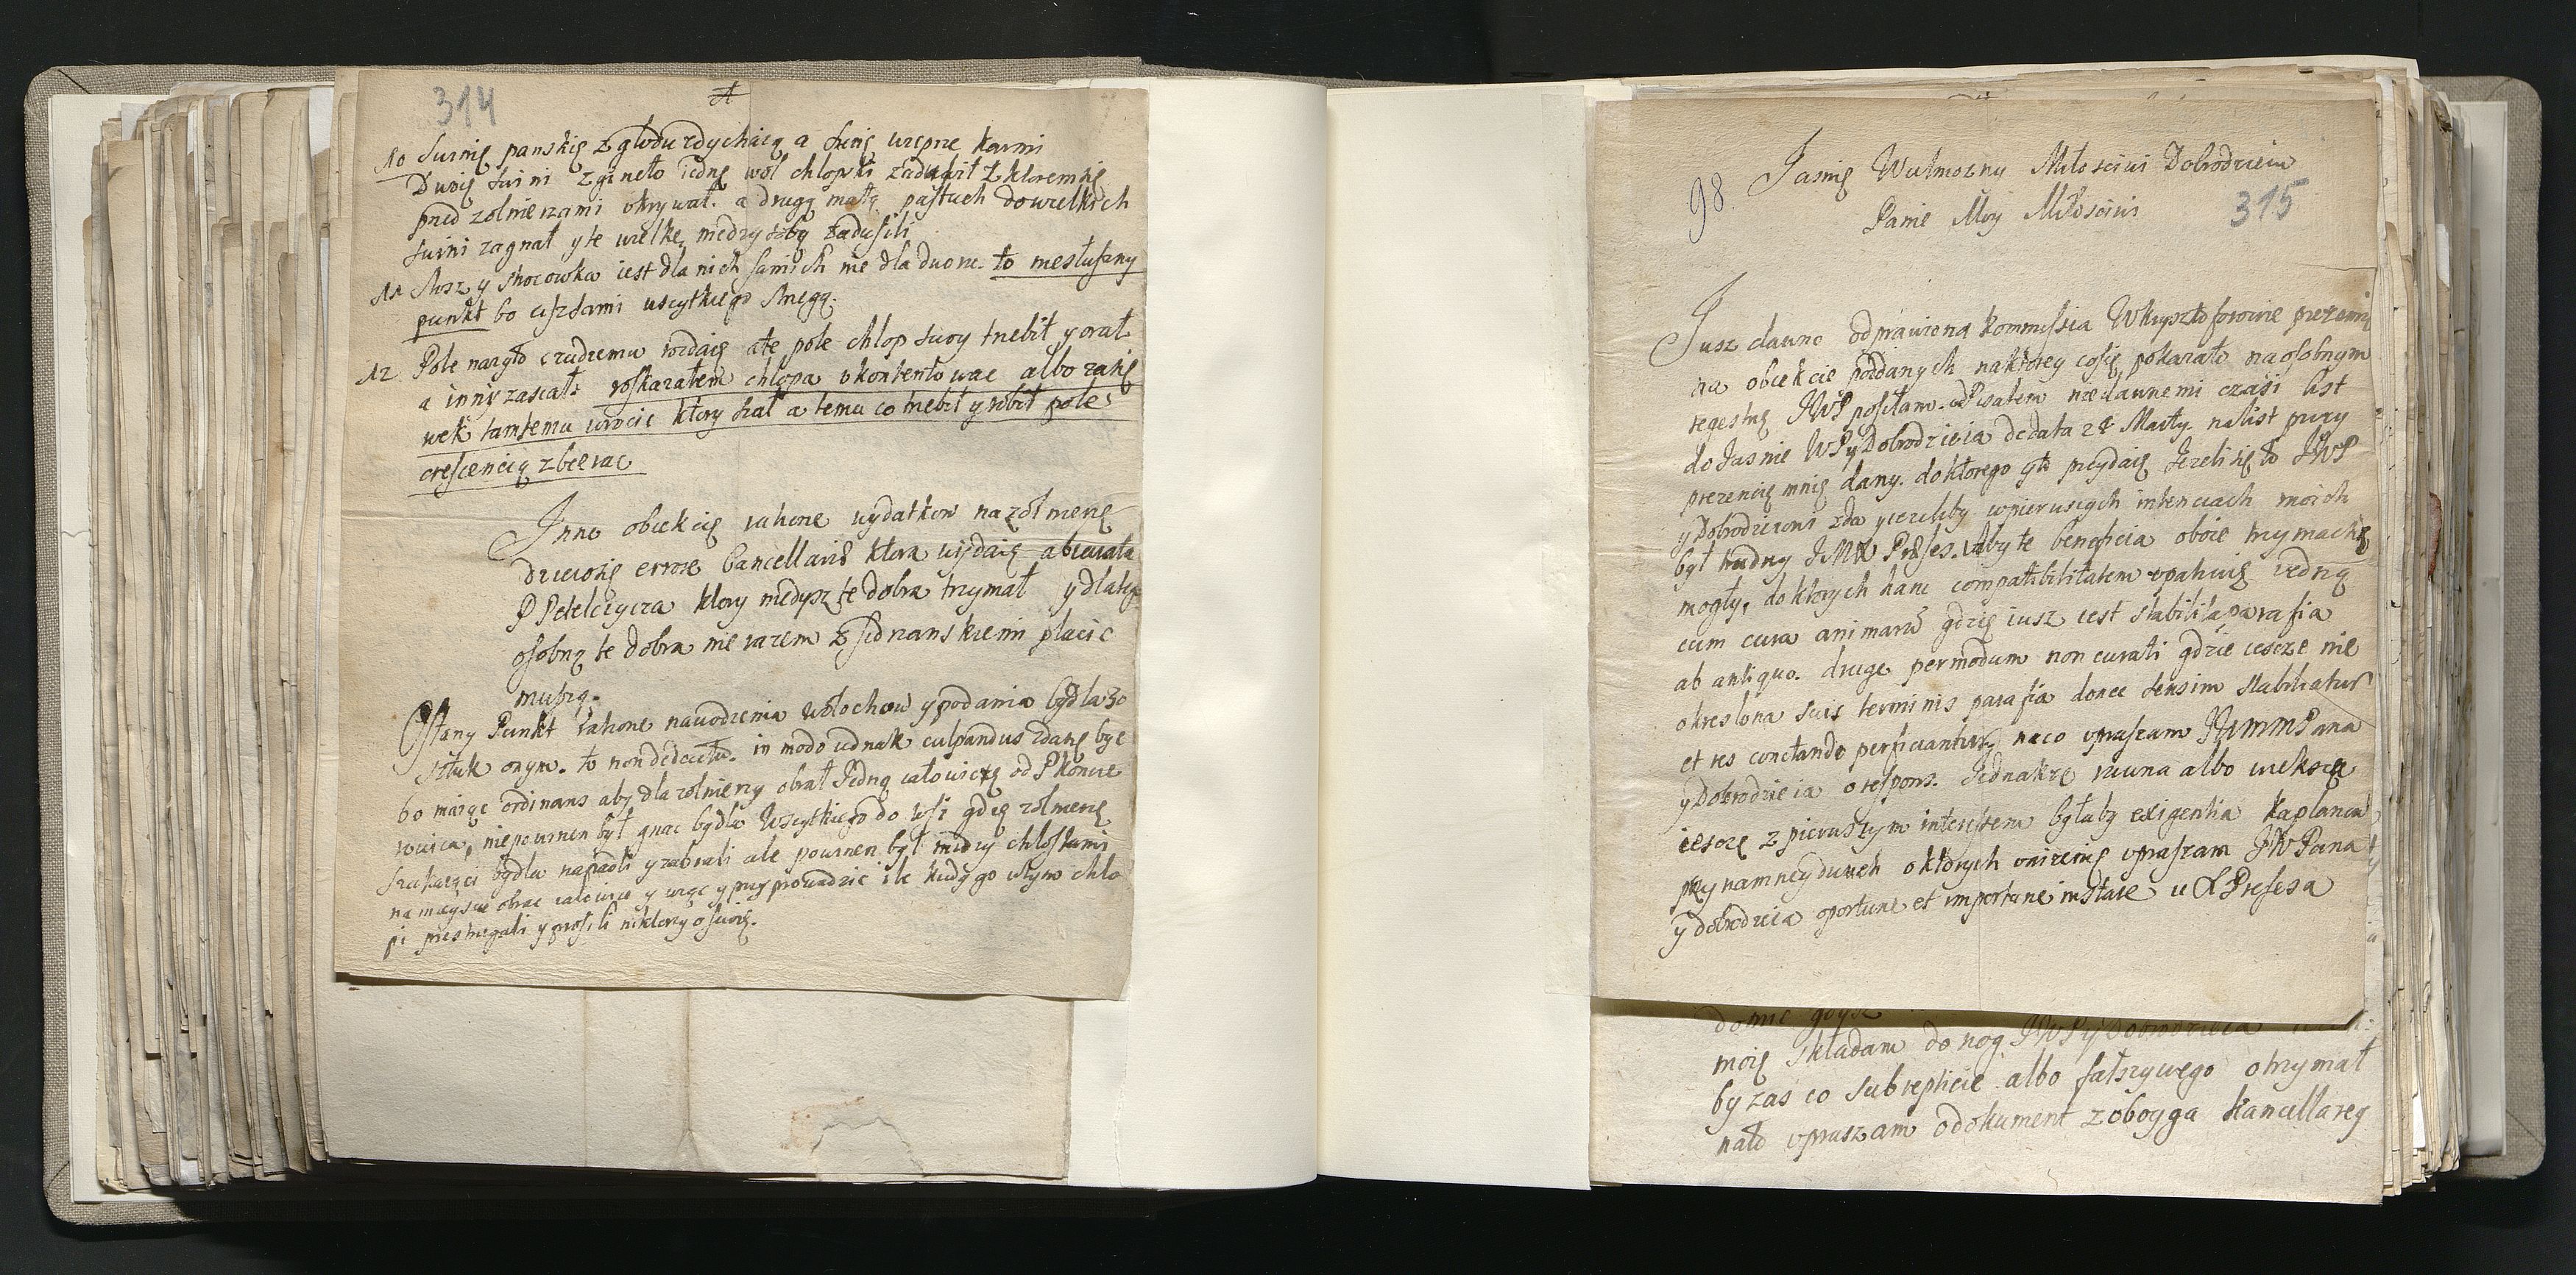 314
A
10 Swinię panskię z głodu zdychaią a swię wieprze karmi
Dwoię swini zginęło iednę woł chłopski zadusił z ktoremisię
pred zolnierzami vkrywał. a drugą małą pastuch dowielkich
swini zagnał y te wielkie miedzy sobą zadusili
11 Msz y Mocowka iest dla nich samich nie dla dworu. to niesłuszny
punkt bo czysami wszytkiego Mnegą.
12 Pole nazyto cudzemu rozdaię ate pole chłop swoy trzebił y orał
a inny zascał: roskazałem chłopa vkontentowac albo zasię
wek tamtemu wrocic ktory siał a temu co trzebił y robił pole
crescencią zbierac
Inne obiekcie rahone wydatkow nazołnierzę
dzieiosię errore Cancellariæ ktora wydaię abiurata
P Petelczyca ktory niedysz te dobra trzymał y dlatego
osobno te dobra nie razem z sidzianskiemi płacic
muszą.
Ostany Punkt rahone nawodzenia wołochow y podania bydła 30
sztuk onym. to non deducitur. in modo iednak culpandus zdaię bye
bo maiąc ordinans aby dla zolnierzy obrał Jedną iałowicę od P konce
wicza, niepowinien był gnac bydło Wszytkiego do wsi gdzie zolnierzę
szukaięci bydła napadli y zabrali ale powinien był miedzy chłostami
na mieyscu obrac iałowicę y wziąc y przyprowadzic ile kiedy go wtym chło
pi przestrzegali y prosili niktorzy o swoię.
98.
315
Jasnię Wielmozny Miłosciwi Dobrodzieiu
Panie Moy Miłosciwi
Jusz dawno odprawiona kommissia Wkrysztoforowie przezmię
na obiekcie poddanych naktorey cosię pokazało naosobnym
regestrę JWP posełam. odPisałem niedawnemi czasi list
do Jasnie WPy Dobrodzieia dedata 28 Marty. na list przy
prezencię mnię dany. do ktorego yto przydaię Jezelisię to JWP
y Dobrodzieiowi zda y iezeliby wpierwszych intenciach moich
był trudny JMX Præses. Vtby te beneficia oboie trzymacsię
mogły, do ktorych hanc compatibilitatem vpatruię iedną
cum cura animarū gdzię iusz iest stabilita parafia
ab antiquo. drugę per modum non curati gdzie iescze nie
okreslona suis terminis parafia donec sensim stabiliatur
et res cunctando perficiantur, naco vpraszam JWMMPana
y Dobrodzieia o respons. Jednakze rowna albo wieksza
iescze z pierwszym interessem byłaby exigentia kapłanow
przynamniey dwuch o ktorych vnizenię vpraszam JWPana
y dobrodzieia oportune et importune instare u X Presesa
domie gdysz
moię składam do nog JWPy Dobrodzieia
by zas co subrepticie albo fałszywego otrzymał
nato vpraszam o dokument zoboyga kancellarey